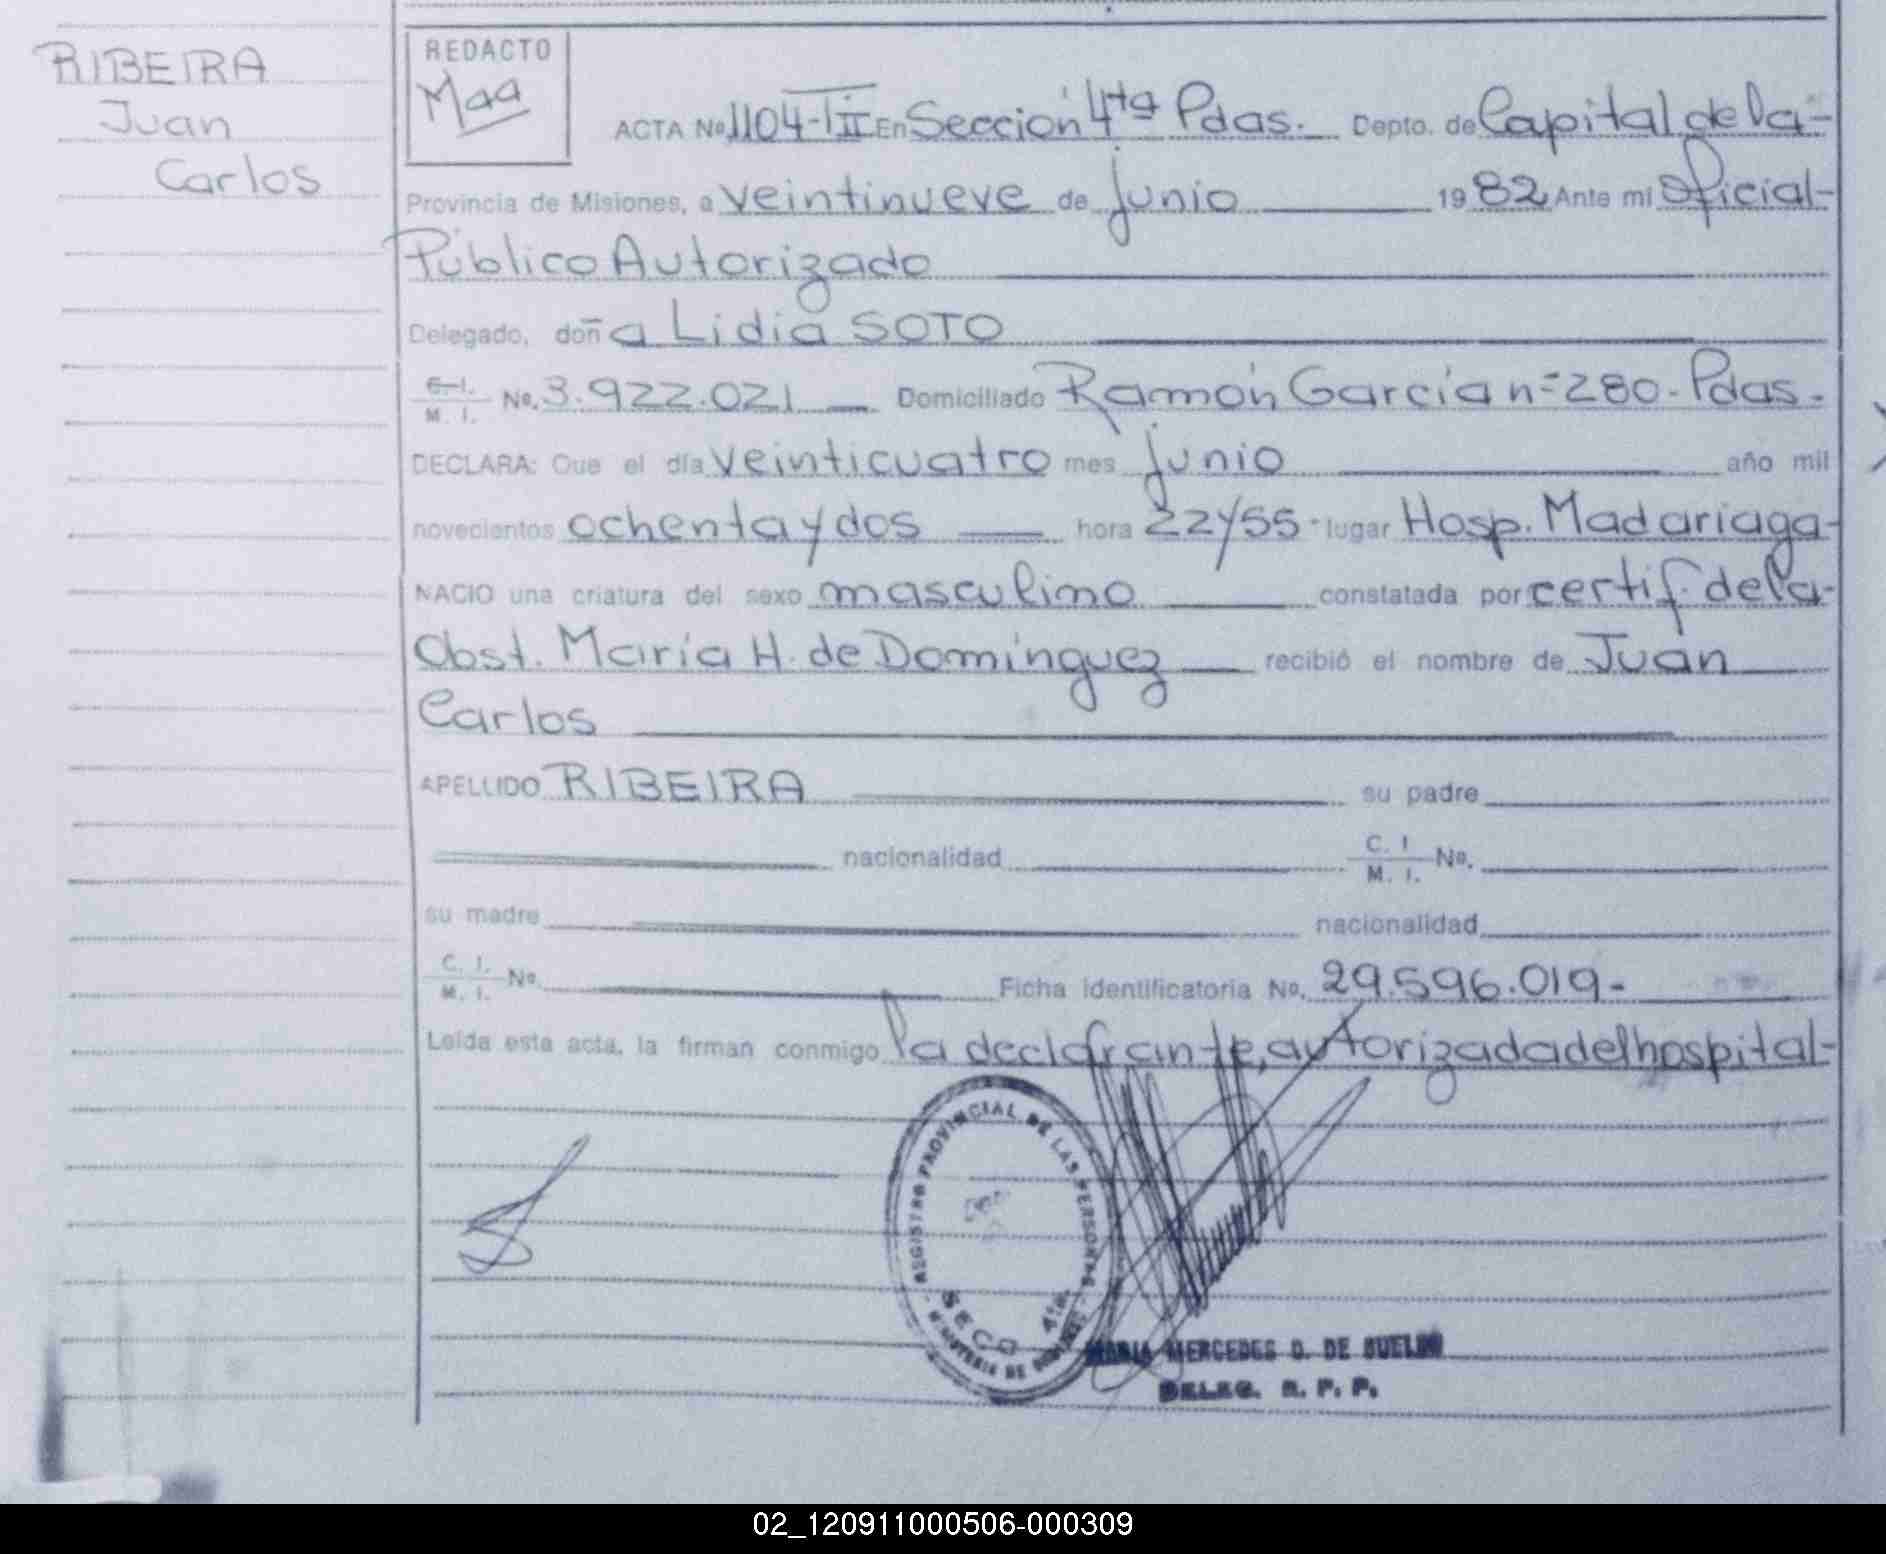 RIBEIRA
Juan
Carlos
REDACTO
Maa
ACTA No 1104-TII En Sección 4ta Pdas. Depto. de Capital de la-
Provincia de Misiones, a veintinueve de junio 1982 Ante mi Oficial-
Público Autorizado
Delegado, doña Lidia SOTO
C. I. M. I. No. 3.922.021 Domiciliado Ramón García n=280-Pdas.
DECLARA: Que el día veinticuatro mes junio año mil
novecientos ochenta y dos hora 22y55 lugar Hosp. Madariaga-
NACIO una criatura del sexo masculino constatada por certif. de la-
Obst. María H. de Domínguez recibió el nombre de Juan
Carlos
APELLIDO RIBEIRA su padre
nacionalidad C. I. M. I. No.
su madre nacionalidad
C. I. M. I. No. Ficha identificatoria No. 29.596.019-
Leída esta acta, la firman conmigo la declarante, autorizada del hospital-
REGISTRO PROVINCIAL DE LAS PERSONAS
SECC 4ta.
MARIA MERCEDES D. DE
DELEG. R. P. P.
02_120911000506-000309